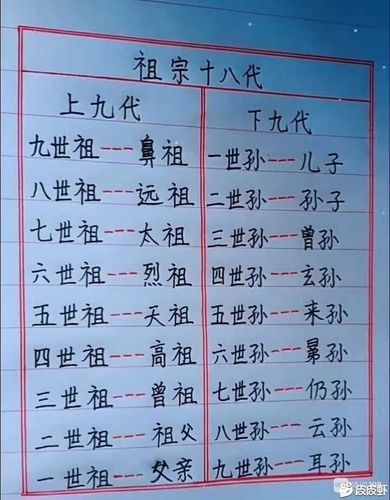 祖宗十八代
上九代 下九代
九世祖---鼻祖 一世孙---儿子
八世祖---远祖 二世孙---孙子
七世祖---太祖 三世孙---曾孙
六世祖---烈祖 四世孙---玄孙
五世祖---天祖 五世孙---来孙
四世祖---高祖 六世孙---晜孙
三世祖---曾祖 七世孙---仍孙
二世祖---祖父 八世孙---云孙
一世祖---父亲 九世孙---耳孙
皮皮虾